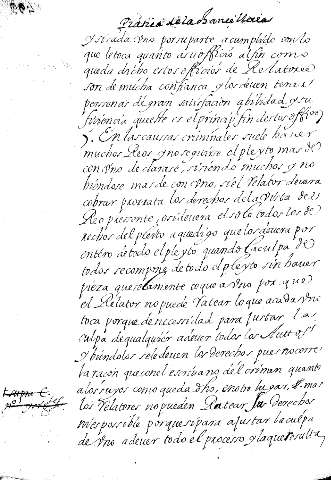 Pratica de la Chancilleria
y si cada vno por su parte a cumplido con lo
que le toca quanto a su officio al fin como
queda dicho estos officios de Relatores
son de mucha confianza y los deven tener
personas de gran satisfacion abilidad y su
ficiencia que este es el principal fin destos officios
7. En las causas criminales suele haver
muchos Reos y no seguirse el pleyto mas de
con vno de claras e, siendo muchos, y no
biendose mas de con vno, si el Relator devera
cobrar prorata los derechos de la vista de el
Reo presente, o si devera el solo todos los de
rechos del pleito a que digo que los devera por
entero de todo el pleyto quando la culpa de
todos se compone de todo el pleyto sin haver
pieza que solamente toque a vno por que
el Relator no puede Ratear lo que a cada vno
toca porque de necesidad para justar la
culpa de qualquier a de ver todos los Auttos
y biendolos se le deven los derechos pues no corre
la razon que con el escribano del crimen quanto
a los suyos como queda dho, en otro lugar, mas
los Relatores no pueden Ratear su Derechos
ni es possible porque si para ajustar la culpa
de vno a de ver todo el processo y la que resulta